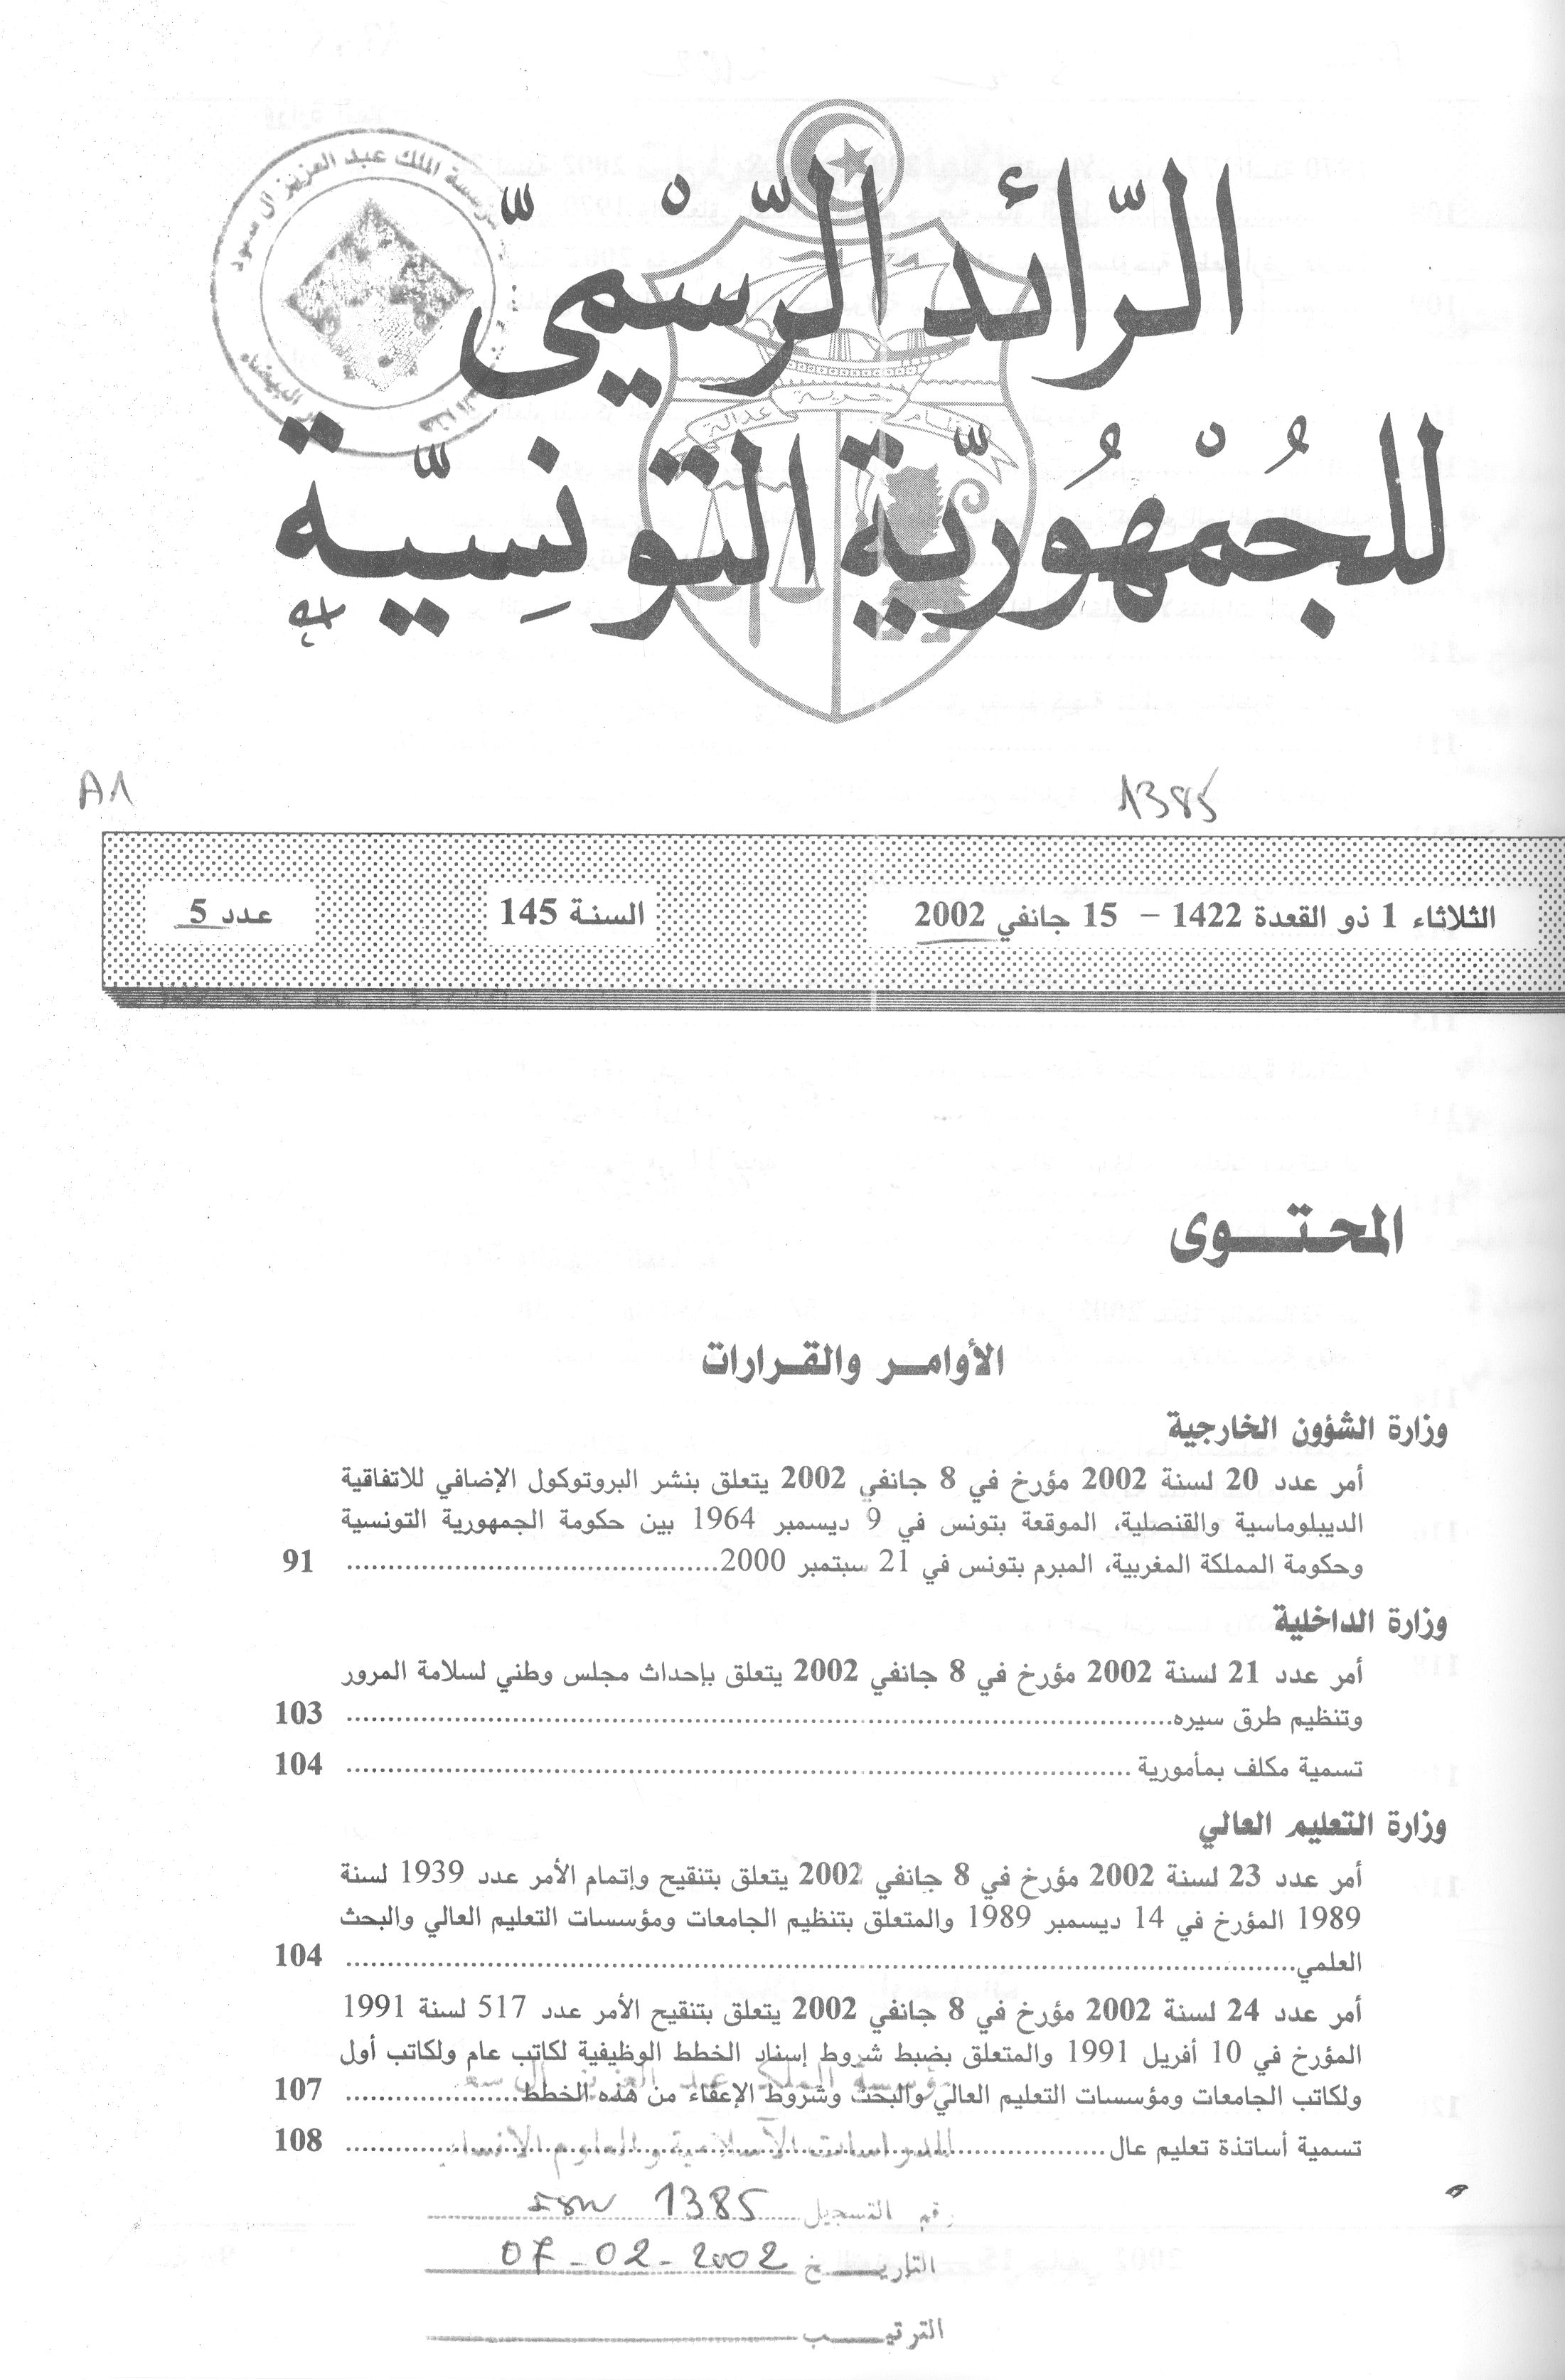 الرّائد الرّسْميّ
للجُمْهُوريّة التّونِسيّة
نظام حرية عدالة
مؤسسة الملك عبد العزيز آل سعود
البيضاء
A1
1385
الثلاثاء 1 ذو القعدة 1422 – 15 جانفي 2002
السنة 145
عدد 5
المحتوى
الأوامر والقرارات
وزارة الشؤون الخارجية
أمر عدد 20 لسنة 2002 مؤرخ في 8 جانفي 2002 يتعلق بنشر البروتوكول الإضافي للاتفاقية
الديبلوماسية والقنصلية، الموقعة بتونس في 9 ديسمبر 1964 بين حكومة الجمهورية التونسية
وحكومة المملكة المغربية، المبرم بتونس في 21 سبتمبر 2000 ........ 91
وزارة الداخلية
أمر عدد 21 لسنة 2002 مؤرخ في 8 جانفي 2002 يتعلق بإحداث مجلس وطني لسلامة المرور
وتنظيم طرق سيره ........ 103
تسمية مكلف بمأمورية ........ 104
وزارة التعليم العالي
أمر عدد 23 لسنة 2002 مؤرخ في 8 جانفي 2002 يتعلق بتنقيح وإتمام الأمر عدد 1939 لسنة
1989 المؤرخ في 14 ديسمبر 1989 والمتعلق بتنظيم الجامعات ومؤسسات التعليم العالي والبحث
العلمي ........ 104
أمر عدد 24 لسنة 2002 مؤرخ في 8 جانفي 2002 يتعلق بتنقيح الأمر عدد 517 لسنة 1991
المؤرخ في 10 أفريل 1991 والمتعلق بضبط شروط إسناد الخطط الوظيفية لكاتب عام ولكاتب أول
ولكاتب الجامعات ومؤسسات التعليم العالي والبحث وشروط الإعفاء من هذه الخطط ........ 107
مؤسسة الملك عبد العزيز آل سعود
تسمية أساتذة تعليم عال ........ 108
للدراسات الاسلامية والعلوم الانسانية
رقم التسجيل 1385
التاريخ 07-02-2002
الترتيب